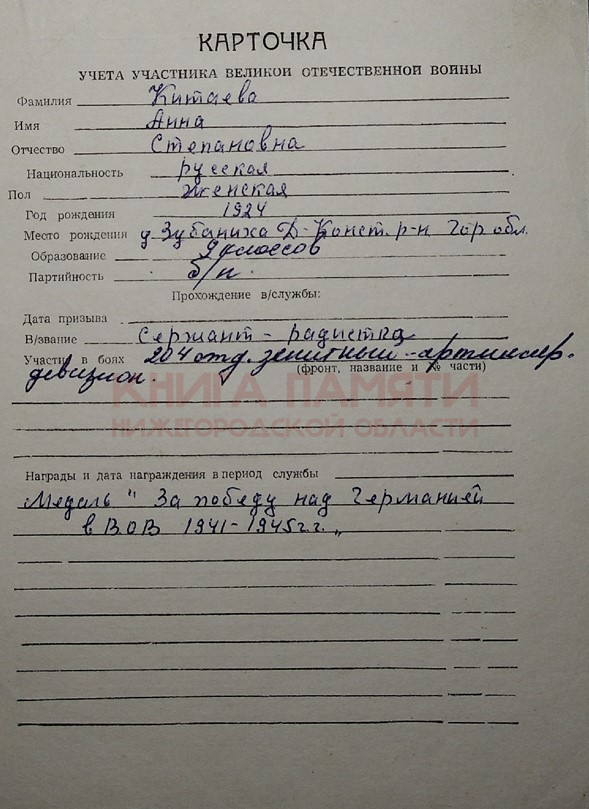 КАРТОЧКА
УЧЕТА УЧАСТНИКА ВЕЛИКОЙ ОТЕЧЕСТВЕННОЙ ВОЙНЫ
Фамилия Китаева
Имя Анна
Отчество Степановна
Национальность русская
Пол женская
Год рождения 1924
Место рождения д Зубаниха Д-Конст. р-н Гор обл.
Образование 9 классов
Партийность б/п.
Прохождение в/службы:
Дата призыва
В/звание Сержант - радистка
Участи в боях 204 отд. зенитный-артиллер.
(фронт, название и № части)
дивизион.
КНИГА ПАМЯТИ
НИЖЕГОРОДСКОЙ ОБЛАСТИ
Награды и дата награждения в период службы
Медаль "За победу над Германией
в В.О.В 1941-1945г.г."